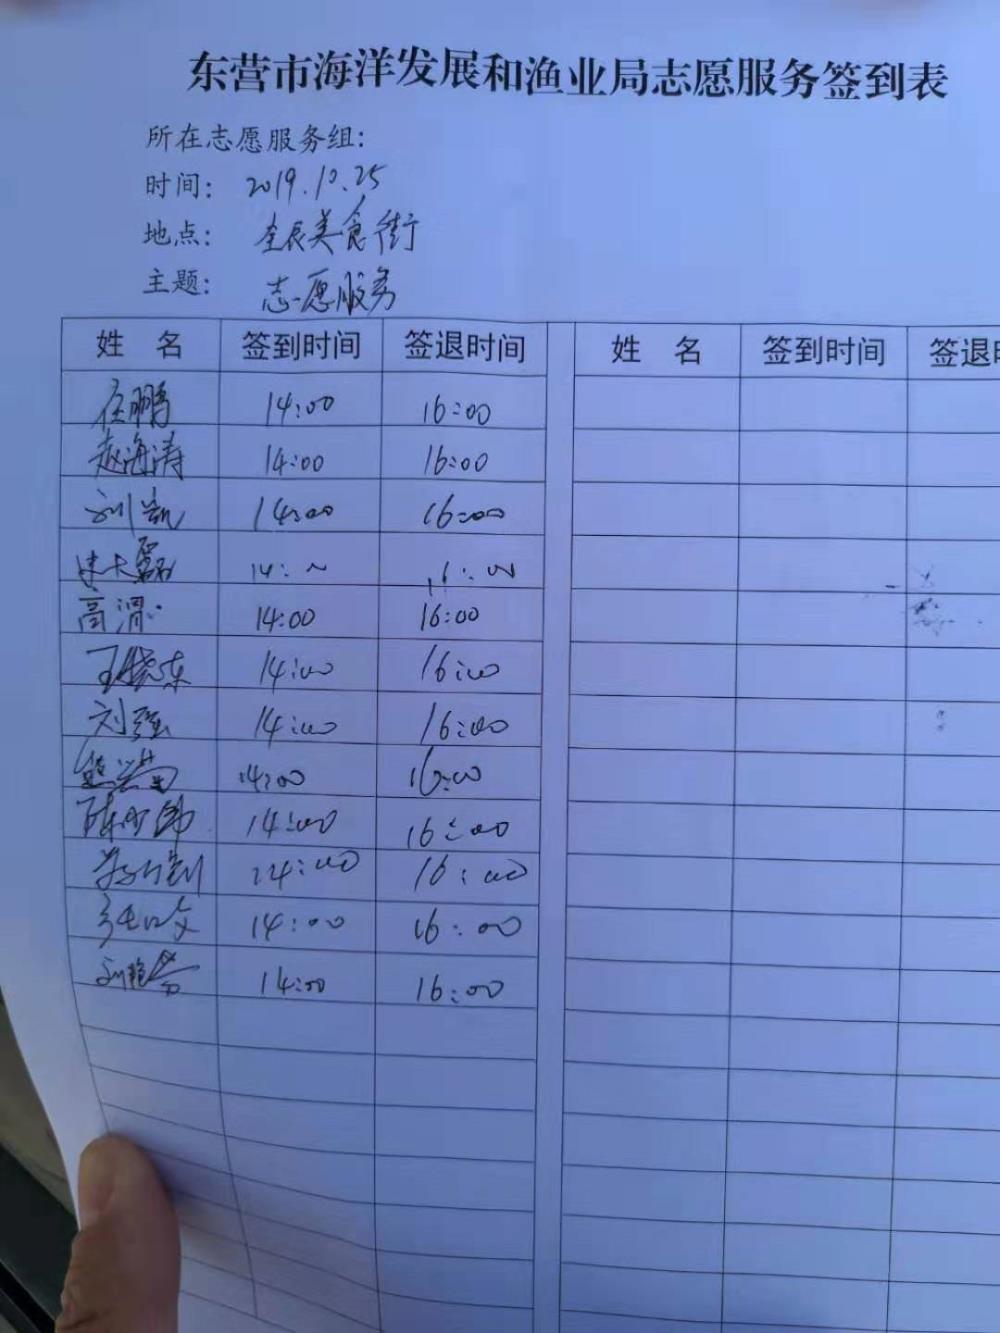 东营市海洋发展和渔业局志愿服务签到表
所在志愿服务组:
时间: 2019.10.25
地点: 美食街
主题: 志愿服务
姓 名 签到时间 签退时间 姓 名 签到时间 签退时
任鹏 14:00 16:00
赵海涛 14:00 16:00
刘凯 14:00 16:00
14:00 16:00
高渭 14:00 16:00
王晓东 14:00 16:00
刘强 14:00 16:00
14:00 16:00
陈少帅 14:00 16:00
14:00 16:00
14:00 16:00
刘艳芬 14:00 16:00